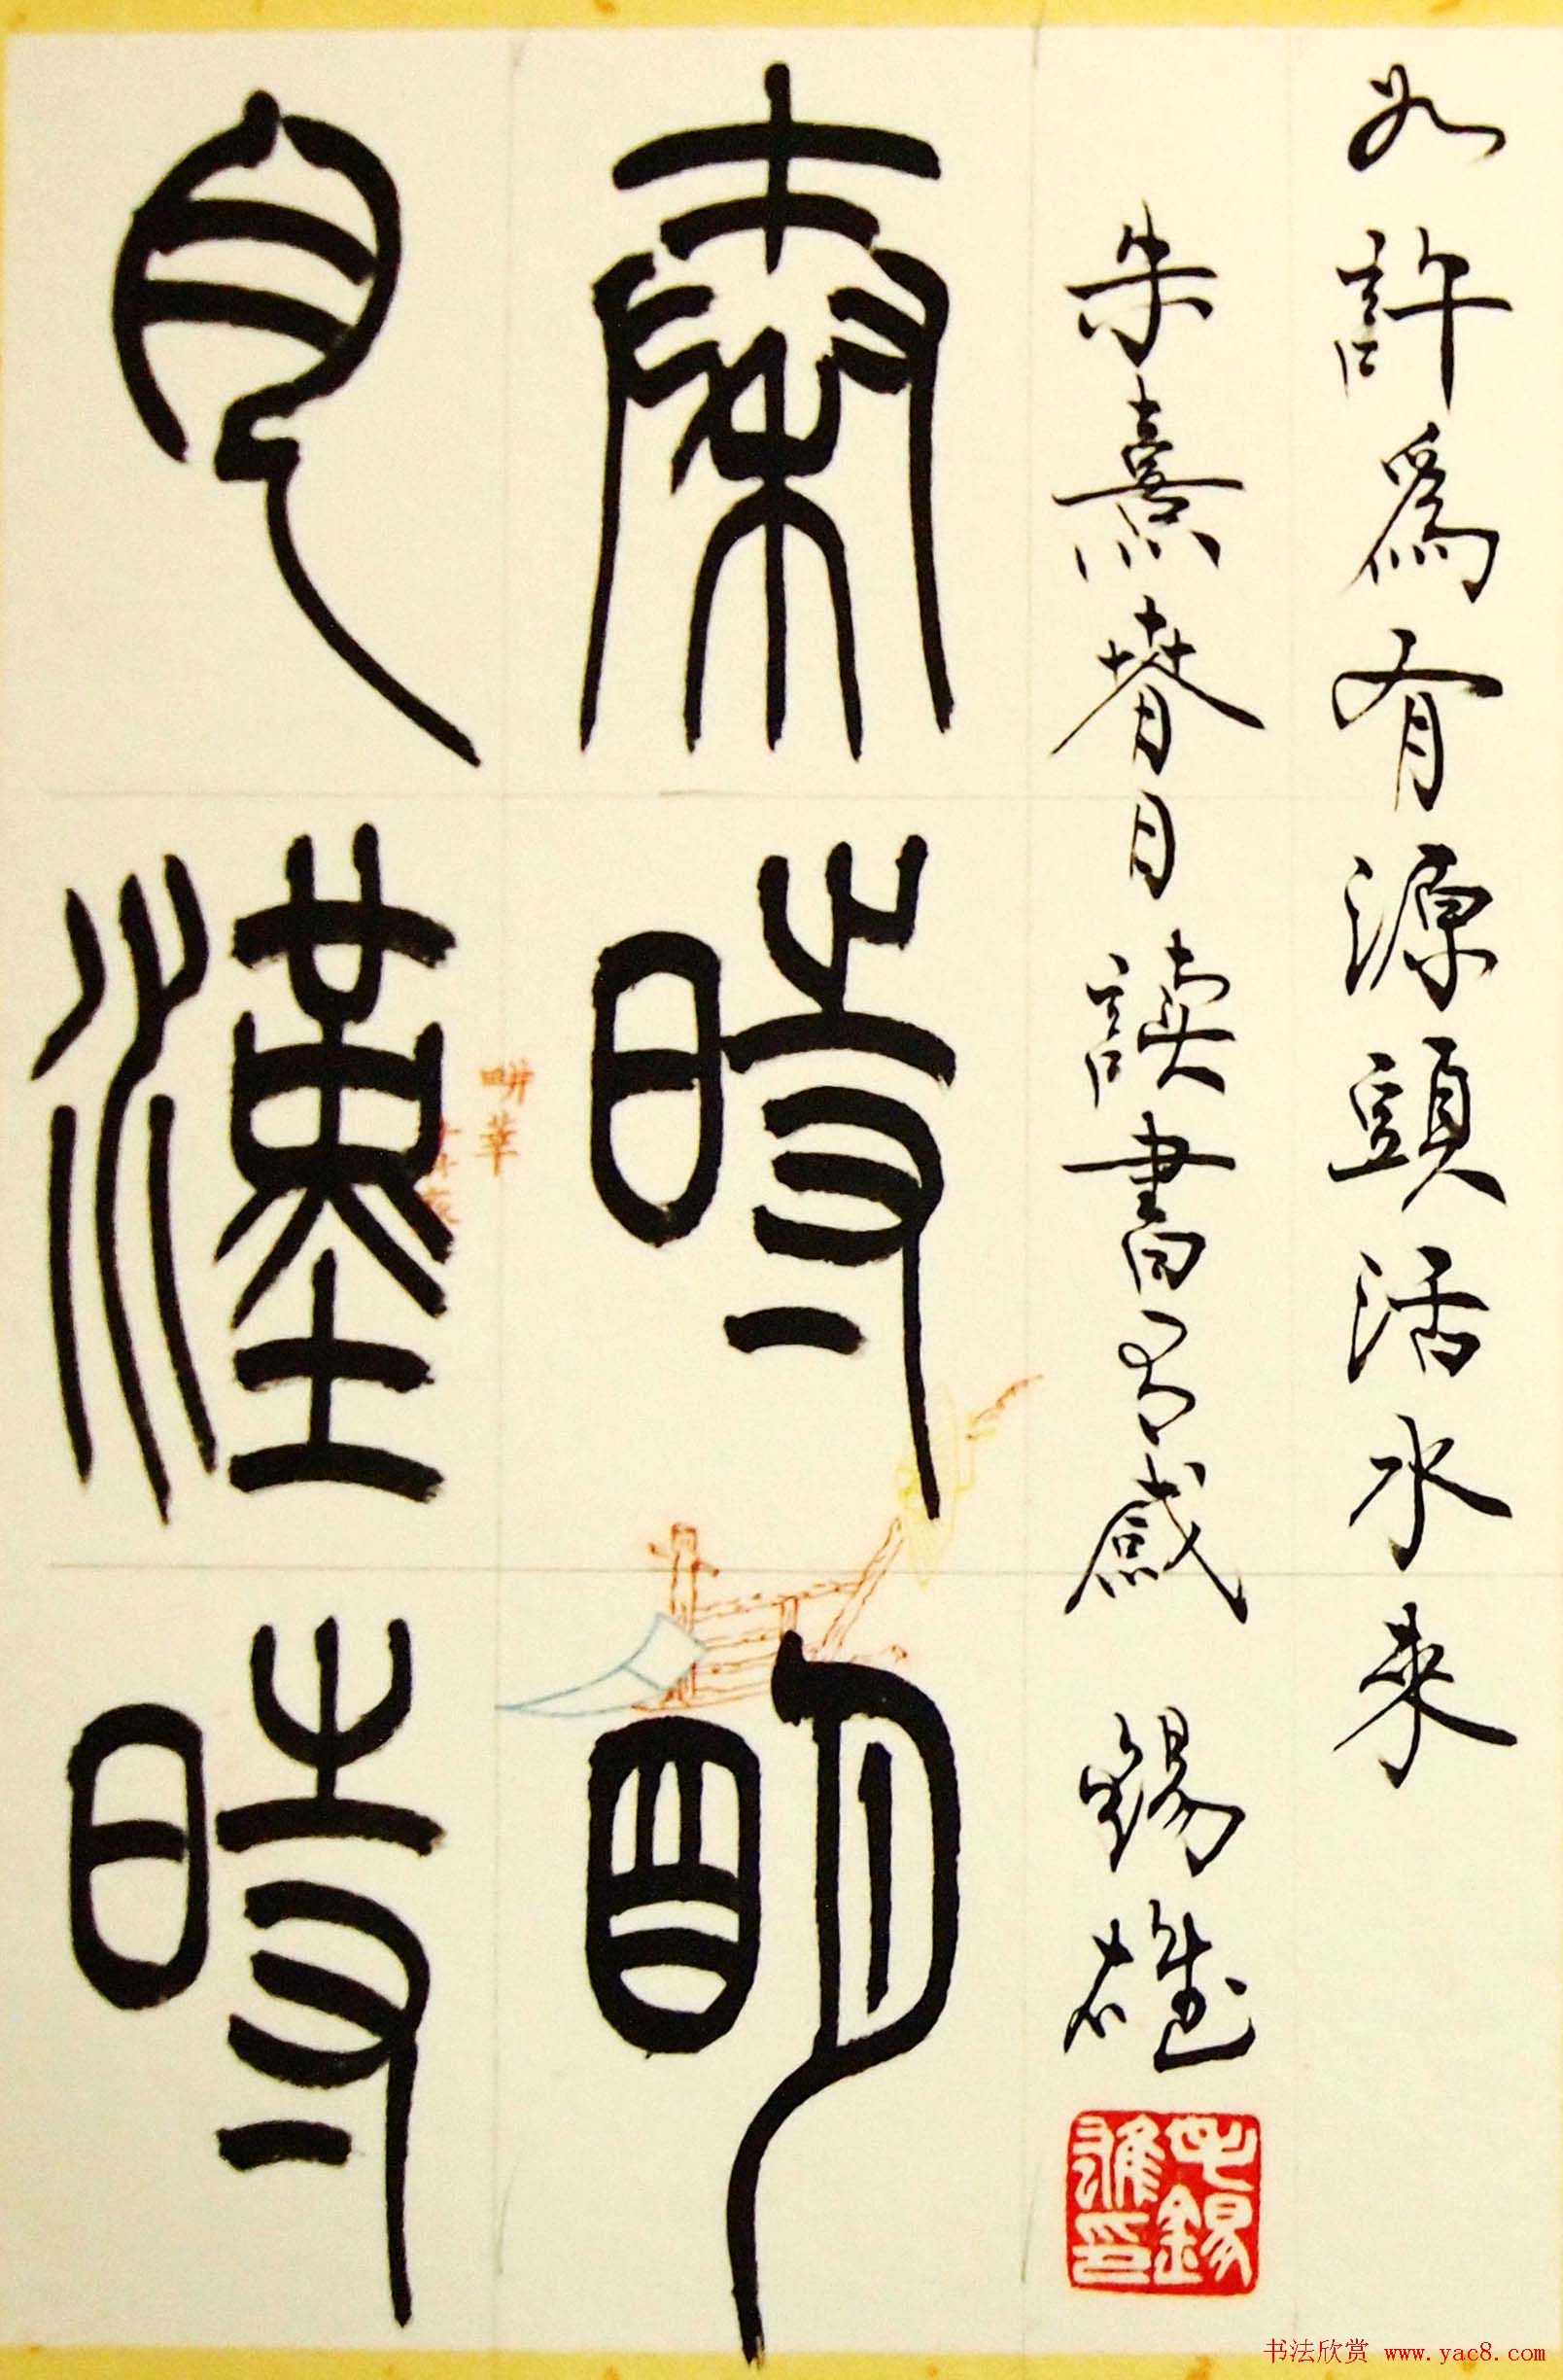 如許爲有源頭活水來
朱熹春日讀書有感 錫雄
秦時明
月漢時
书法欣赏 www.yac8.com